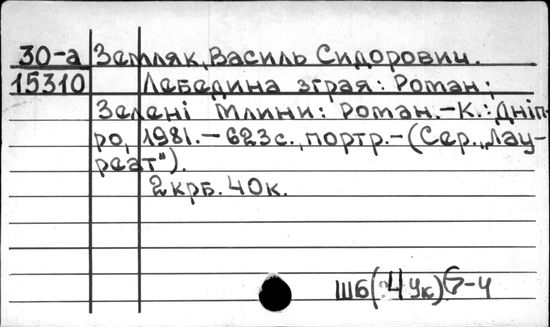 30-а Земляк, Василь Сидорович.
15310 Лебедина зграя: Роман;
Зелені Млини: Роман.–К.: Дніп-
ро, 1981.–623с., портр.–(Сер. „Лау-
реат").
2крб. 40к.
Ш6(4Ук)6-4